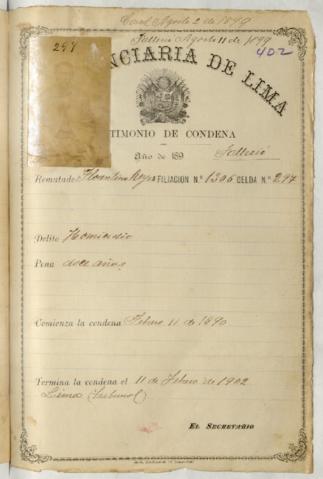 Agosto 2 de 1899
Falleció Agosto 11 de 1899
297
402
NCIARIA DE LIMA
TIMONIO DE CONDENA
Año de 189
Falleció
Rematado Florentino Reyes FILIACION N.º 1306 CELDA N.º 297
Delito Homicidio
Pena doce años
Comienza la condena Febro. 11 de 1890
Termina la condena el 11 de Febro de 1902
Lima
EL SECRETARIO